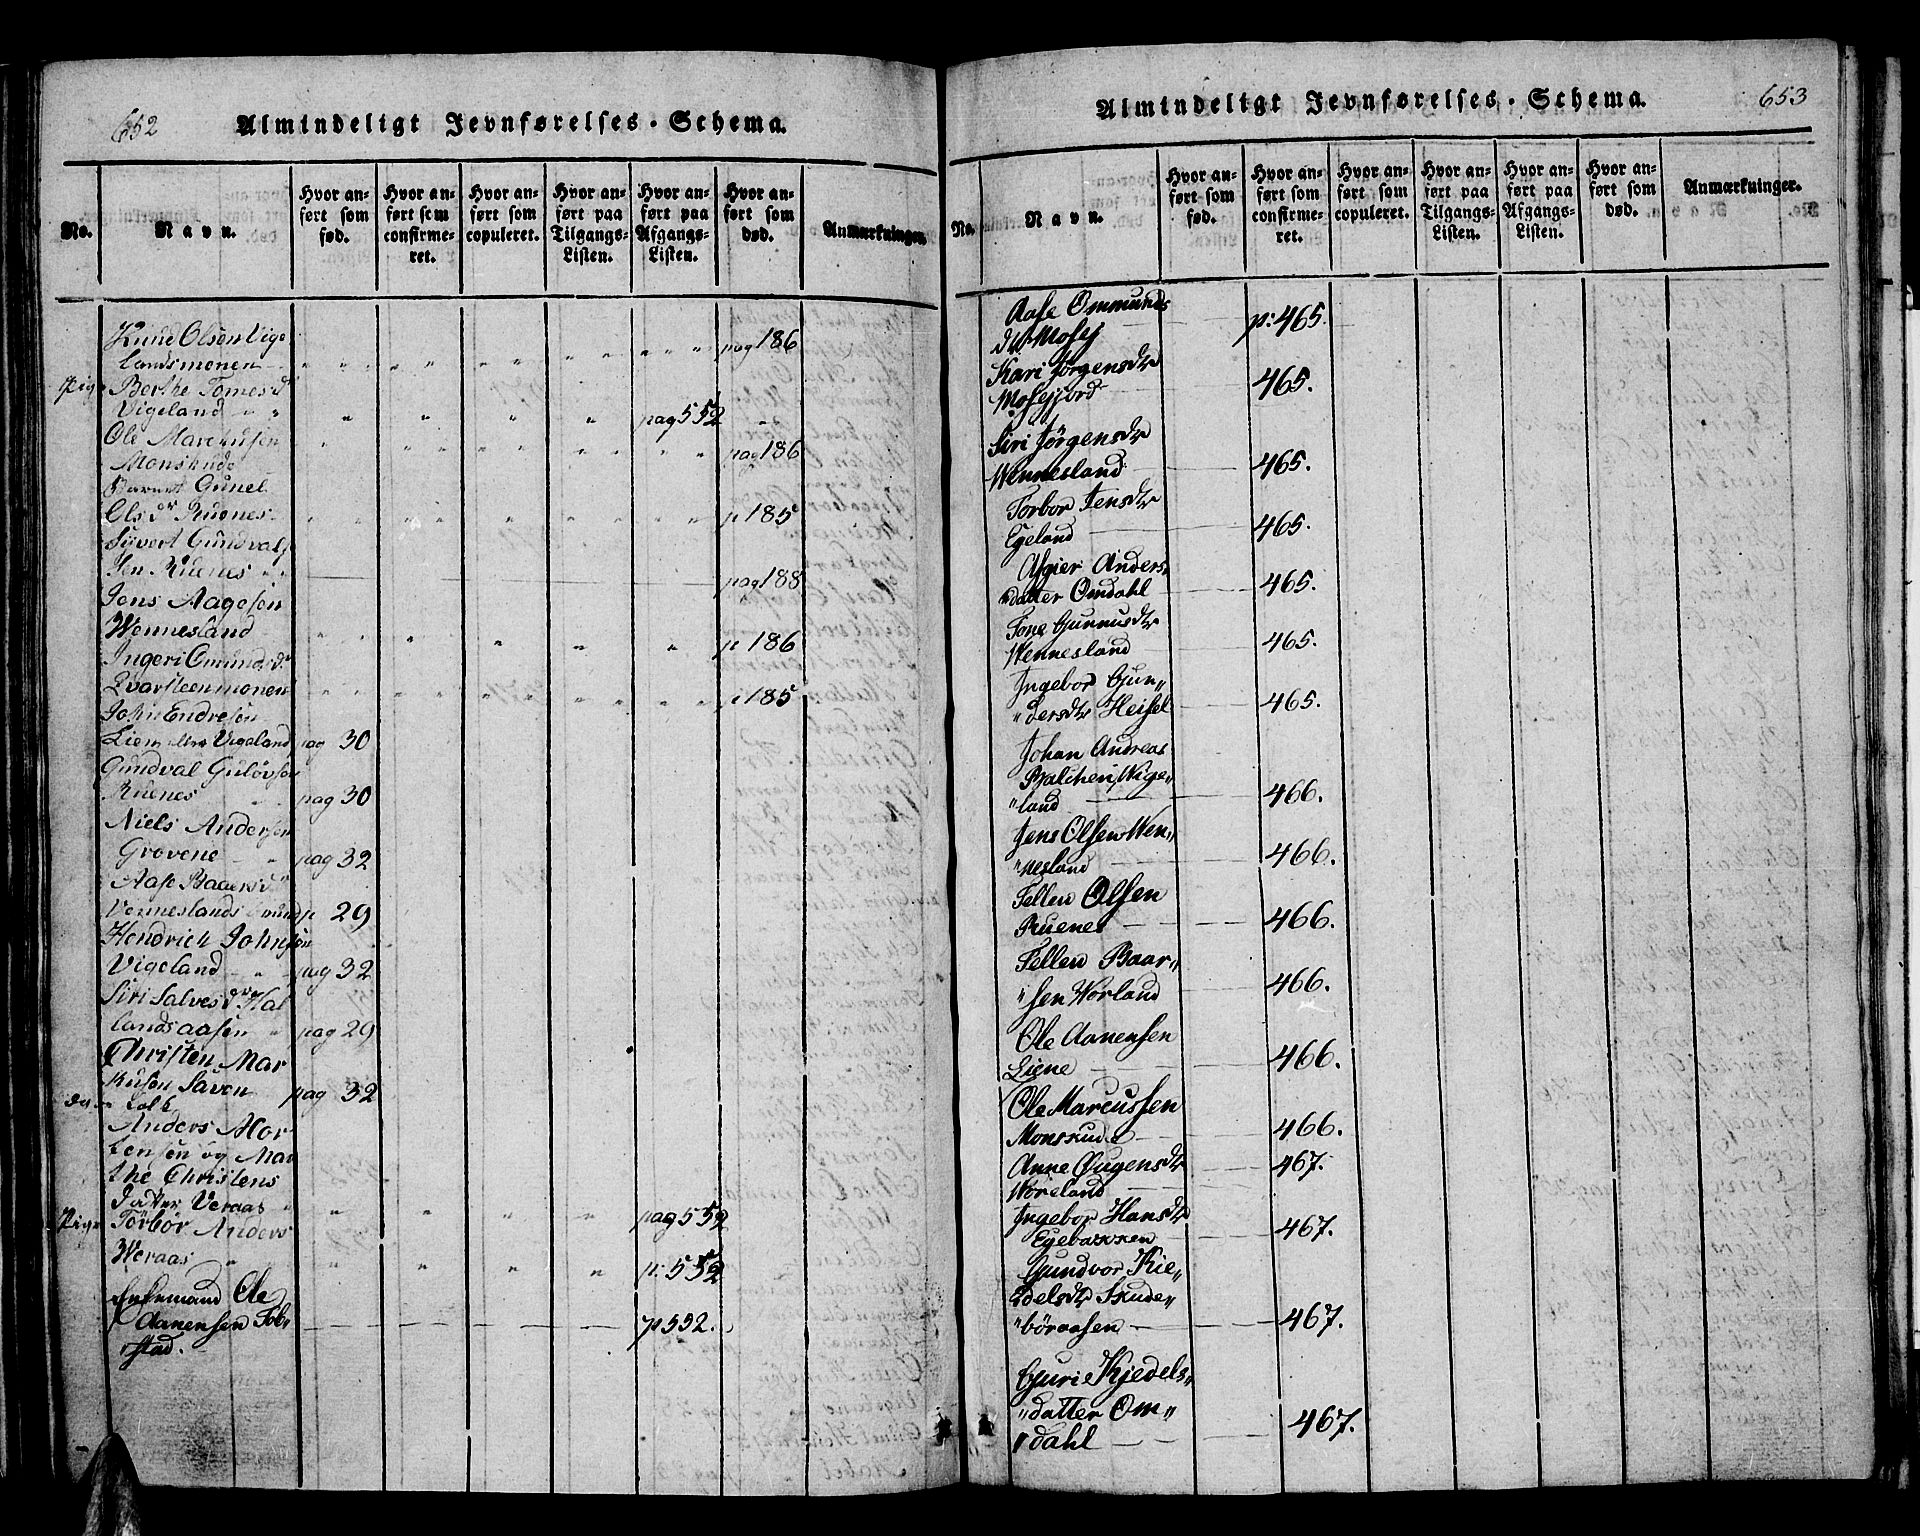 652
Almindeligt Jevnførelses-Schema.
No.
Navn.
Hvor anført som fød.
Hvor anført som confirmeret.
Hvor anført som copuleret.
Hvor anført paa Tilgangs-Listen.
Hvor anført paa Afgangs-Listen.
Hvor anført som død.
Anmærkninger.
Knud Olsen Vige
landsmonen pag 186
Pige Berthe Tomesd
Vigeland " " pag 552
Ole Marcusen
Monskude pag 186
Barnet Gunel
Olsdr Ruenes p 185
Syvert Gundvals
sen Ruenes pag 188
Jens Aagesen
Wennesland p 186
Ingeri Omundsdr
Qvarsteenmonen p 185
John Endresen
Liem Vigeland pag 30
Gundval Guløvsen
Ruenes pag 30
Niels Andersen
Grovene pag 32
Aase Baaersdr
Venneslands p 29
Hendrich Johnsen
Vigeland pag 32
Siri Salvesdr Hal
landsaasen pag 29
Christen Mar
kusen Saven pag 32
Anders Mor
tensen og Mar
the Christens
Datter Veraas pag 552
Pige Torbor Anders
Weraas p: 552
Ole
Aanensen
stad. p 552.
653
Almindeligt Jevnførelses-Schema.
No.
Navn.
Hvor anført som fød.
Hvor anført som confirmeret.
Hvor anført som copuleret.
Hvor anført paa Tilgangs-Listen.
Hvor anført paa Afgangs-Listen.
Hvor anført som død.
Anmærkninger.
Aase Ommunds
dtr Mosej p: 465.
Kari Jørgensdtr
Mosefjord 465.
Siri Jørgensdtr
Wennesland 465.
Torbor Jensdtr
Egeland 465.
Asgier Anders
"datter Omdahl 465.
Tone Gunnusdtr
Wennesland 465.
Ingebor Gun„
"dersdtr Heisel 465.
Johan Andreas
Balchen, Wige„
"land 466.
Jens Olsen Wen„
"nesland 466.
Tellen Olsen
Ruenes 466.
Tellen Baar„
"sen Horland 466.
Ole Aanensen
Liene 466.
Ole Marcussen
Monskude 466.
Anne Øugensdtr 467.
Wøreland
Ingebor Hansdtr
Egebakken 467.
Gundvor Kie„
delsdtr Skude„
"böraasen 467.
Guri Kjedels„
"datter Om„
"dahl 467.